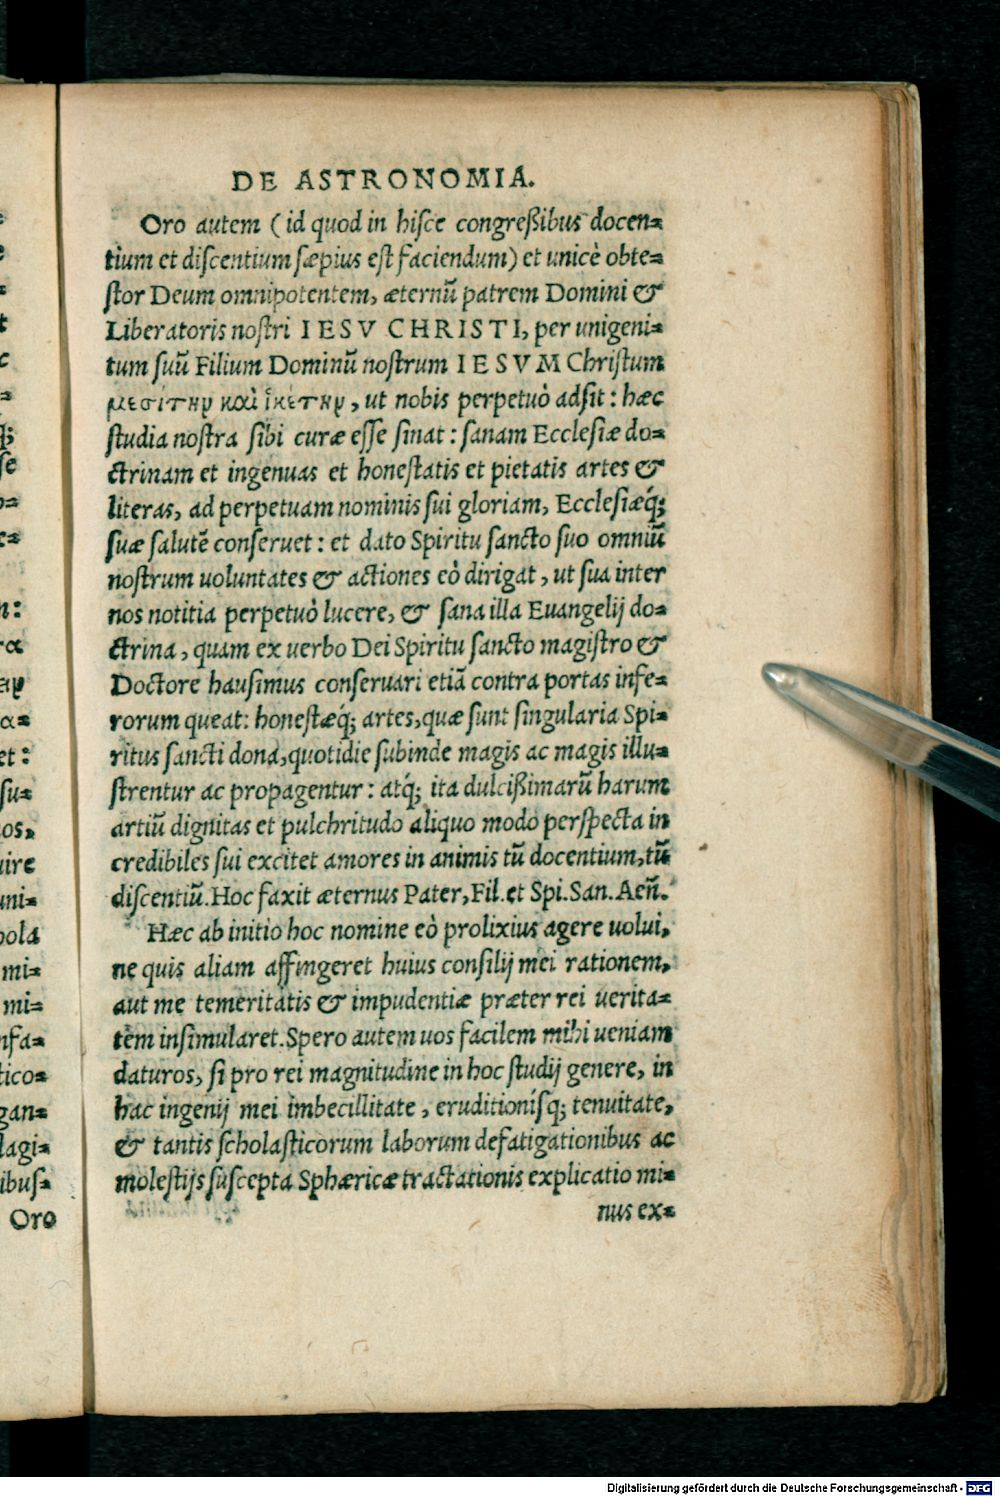 DE ASTRONOMIA.
Oro autem (id quod in hisce congreßibus docen=
tium et discentium sæpius est faciendum) et unicè obte=
stor Deum omnipotentem, æternũ patrem Domini &
Liberatoris nostri IESV CHRISTI, per unigeni=
tum suũ Filium Dominũ nostrum IESVM Christum
μεσίτην καὶ ἱκέτην, ut nobis perpetuò adsit: hæc
studia nostra sibi curæ esse sinat: sanam Ecclesiæ do=
ctrinam et ingenuas et honestatis et pietatis artes &
literas, ad perpetuam nominis sui gloriam, Ecclesiæq́;
suæ salutẽ conseruet: et dato Spiritu sancto suo omniũ
nostrum uoluntates & actiones eò dirigat, ut sua inter
nos notitia perpetuò lucere, & sana illa Euangelij do=
ctrina, quam ex uerbo Dei Spiritu sancto magistro &
Doctore hausimus conseruari etiã contra portas infe=
rorum queat: honestæq́; artes, quæ sunt singularia Spi=
ritus sancti dona, quotidie subinde magis ac magis illu=
strentur ac propagentur: atq́; ita dulcißimarũ harum
artiũ dignitas et pulchritudo aliquo modo perspecta in
credibiles sui excitet amores in animis tũ docentium, tũ
discentiũ. Hoc faxit æternus Pater, Fil. et Spi. San. Aeñ.
Hæc ab initio hoc nomine eò prolixius agere uolui,
ne quis aliam affingeret huius consilij mei rationem,
aut me temeritatis & impudentiæ præter rei uerita=
tem insimularet. Spero autem uos facilem mihi ueniam
daturos, si pro rei magnitudine in hoc studij genere, in
hac ingenij mei imbecillitate, eruditionísq; tenuitate,
& tantis scholasticorum laborum defatigationibus ac
molestijs suscepta Sphæricæ tractationis explicatio mi=
nus ex=
Oro
Digitalisierung gefördert durch die Deutsche Forschungsgemeinschaft - DFG